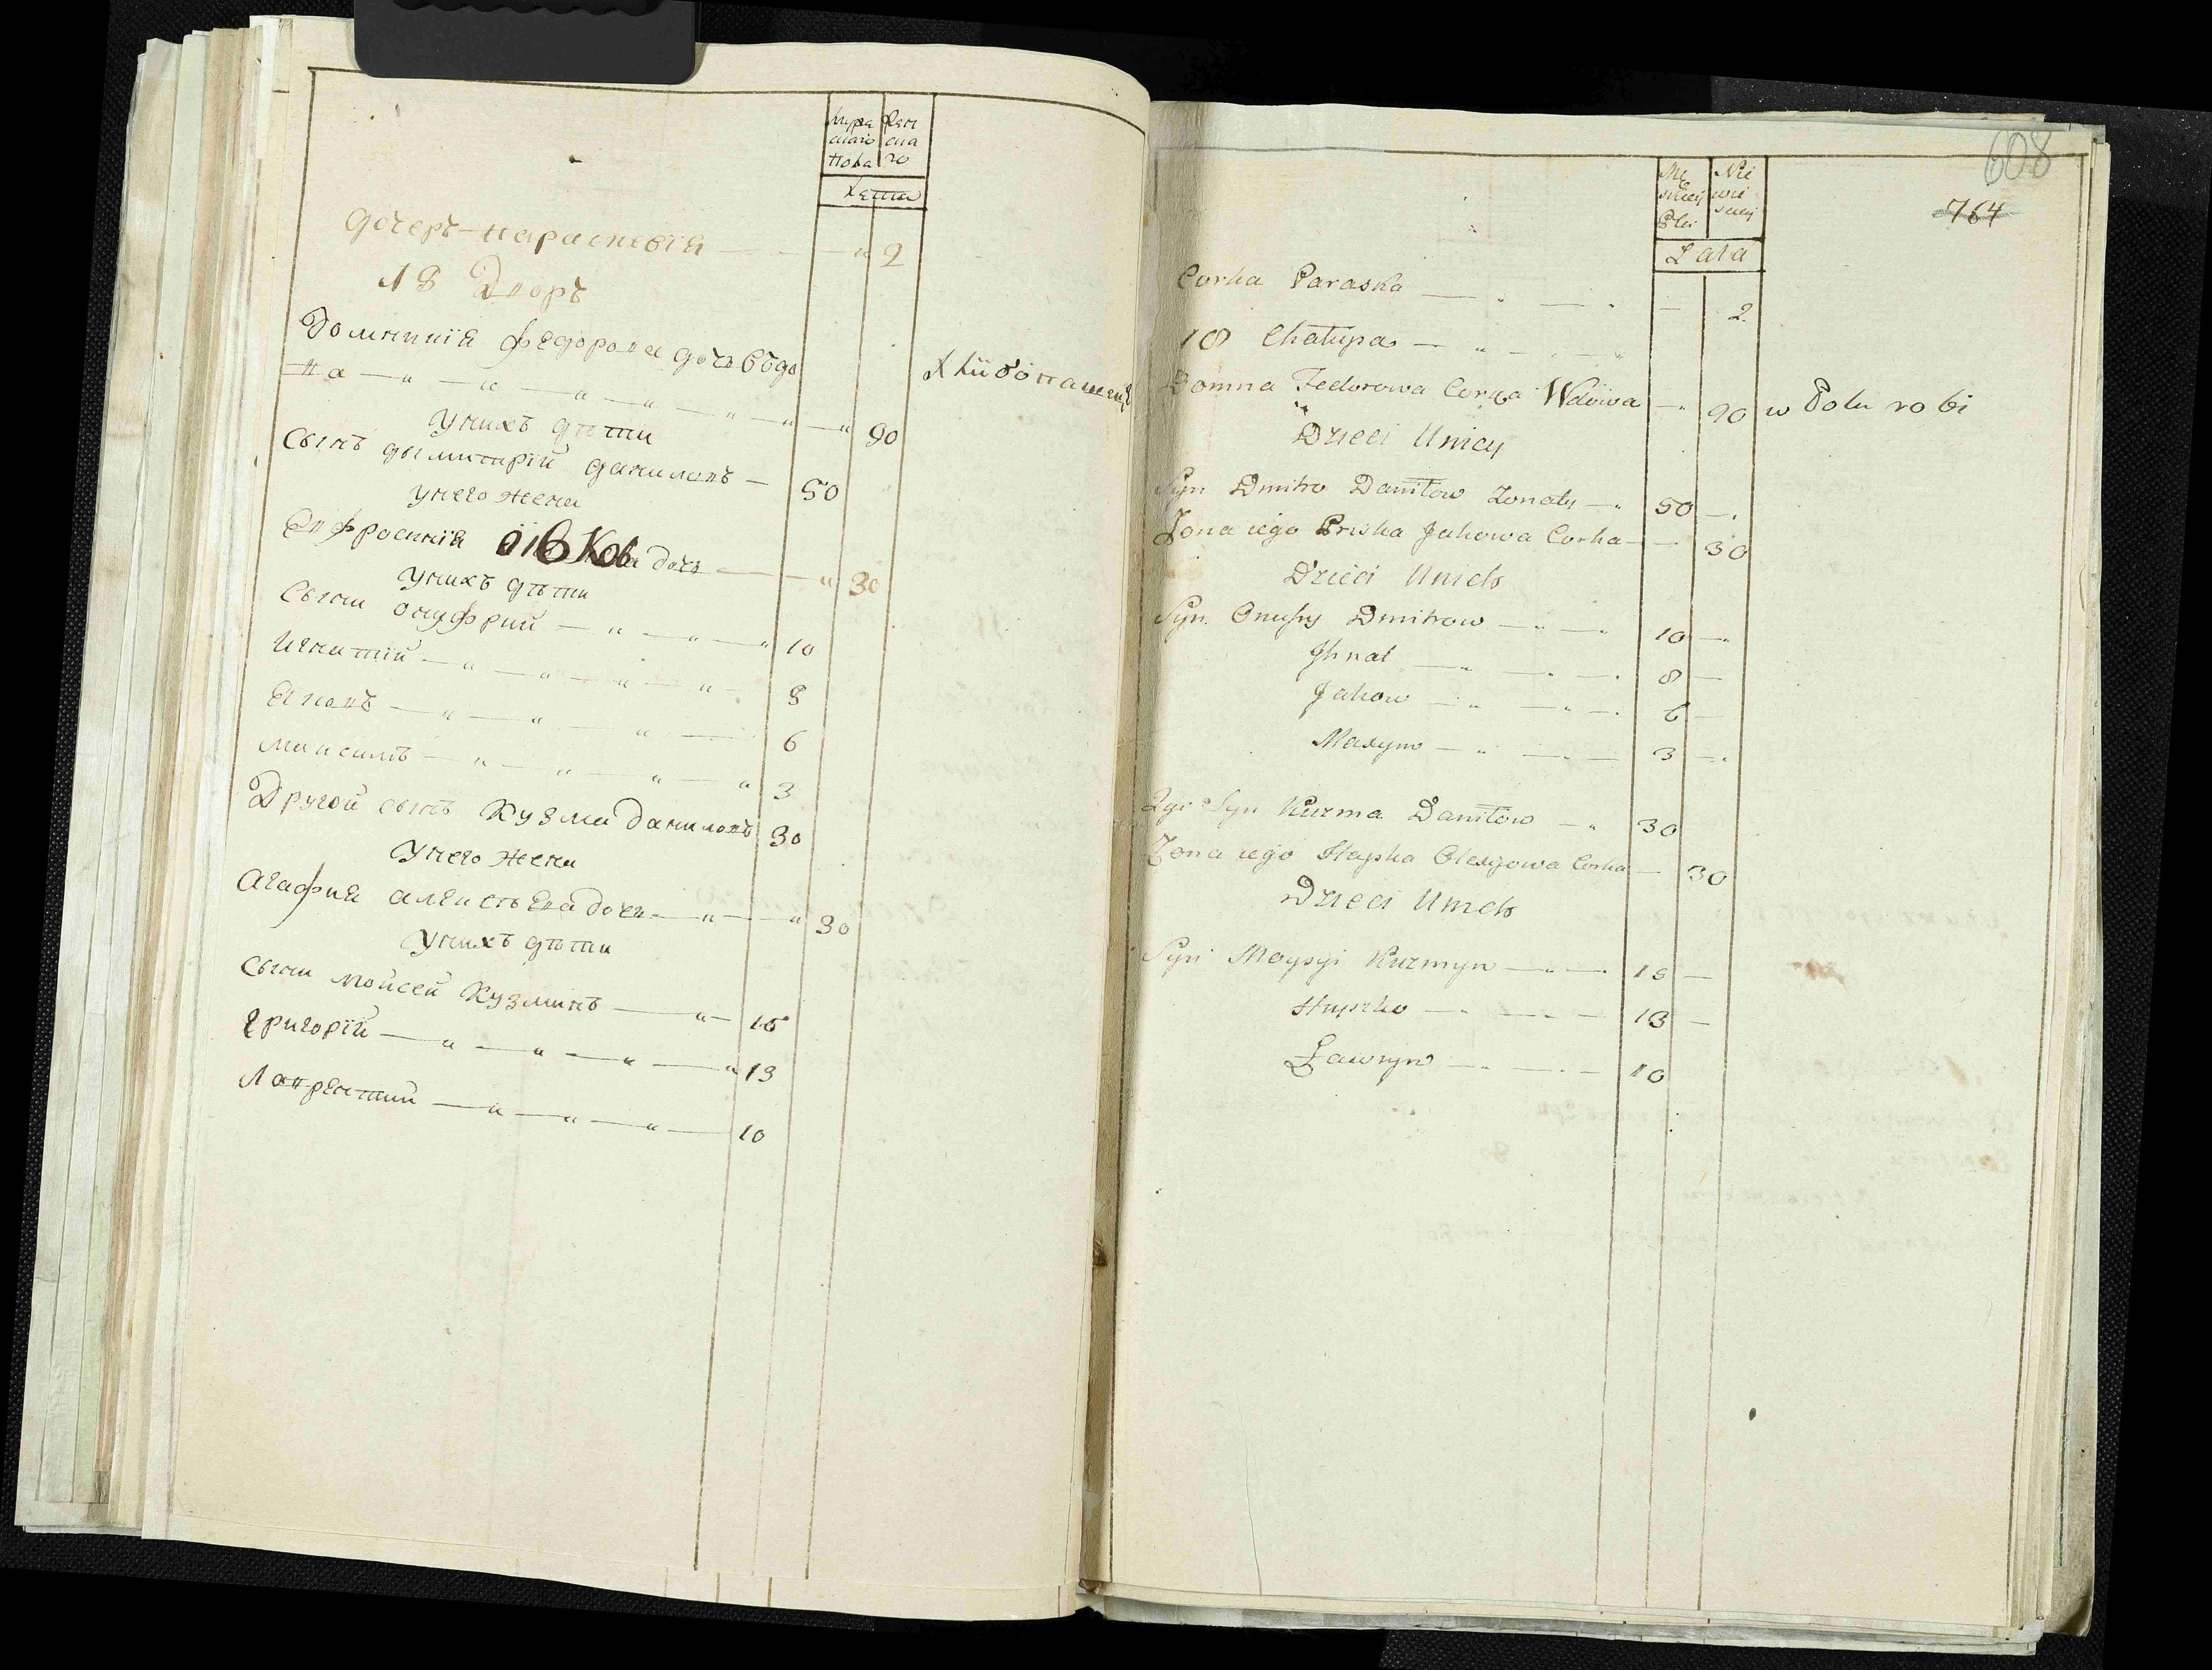 Муже
скаго
пола
Жен
ска
го
Лета
Дочерь Параскевія — " 2
18 Дворъ
Домникія Федорова дочь вдо
ва — " — " — " — " — " — " 90 Хлібопашецъ
У нихъ дѣти
Сынъ Дымитрій Даниловъ — 50
У него жена
Евфросинія Яковова дочь — " 30
У нихъ дѣти
Сыни Онуфрий — " — " — " 10
Игнатий — " — " — " — " — 8
Яковъ — " — " — " — 6
Максимъ — " — " — " — " 3
Другой сынъ Кузма Даниловъ 30
У него жена
Агафия Алексѣева дочь — " — " 30
У нихъ дѣти
Сыни Мойсей Кузминъ — " — 15
Григорій — " — " — " — " 13
Лаврентий — " — " — " — 10
608
764
Mę
skiey
Płci
Nie
wie
sciej
Lata
Corka Paraska — 2
18 Chałupa
Domna Fedorowa Corka Wdowa — 90 w Polu robi
Dzieci Unicy
Syn Dmitro Daniłow Zonaty — 50 —
Zona iego Priska Jakowa Corka — 30
Dzieci Unich
Syn Onufry Dmitrow — 10 —
Jhnat — 8 —
Jakow — 6 —
Maxym — 3 —
2gi Syn Kuzma Daniłow — 30
Zona iego Hapka Olexijowa Corka — 30
Dzieci Unich
Syn Moysyi Kuzmyn — 15 —
Hryszko — 13 —
Ławryn — 10